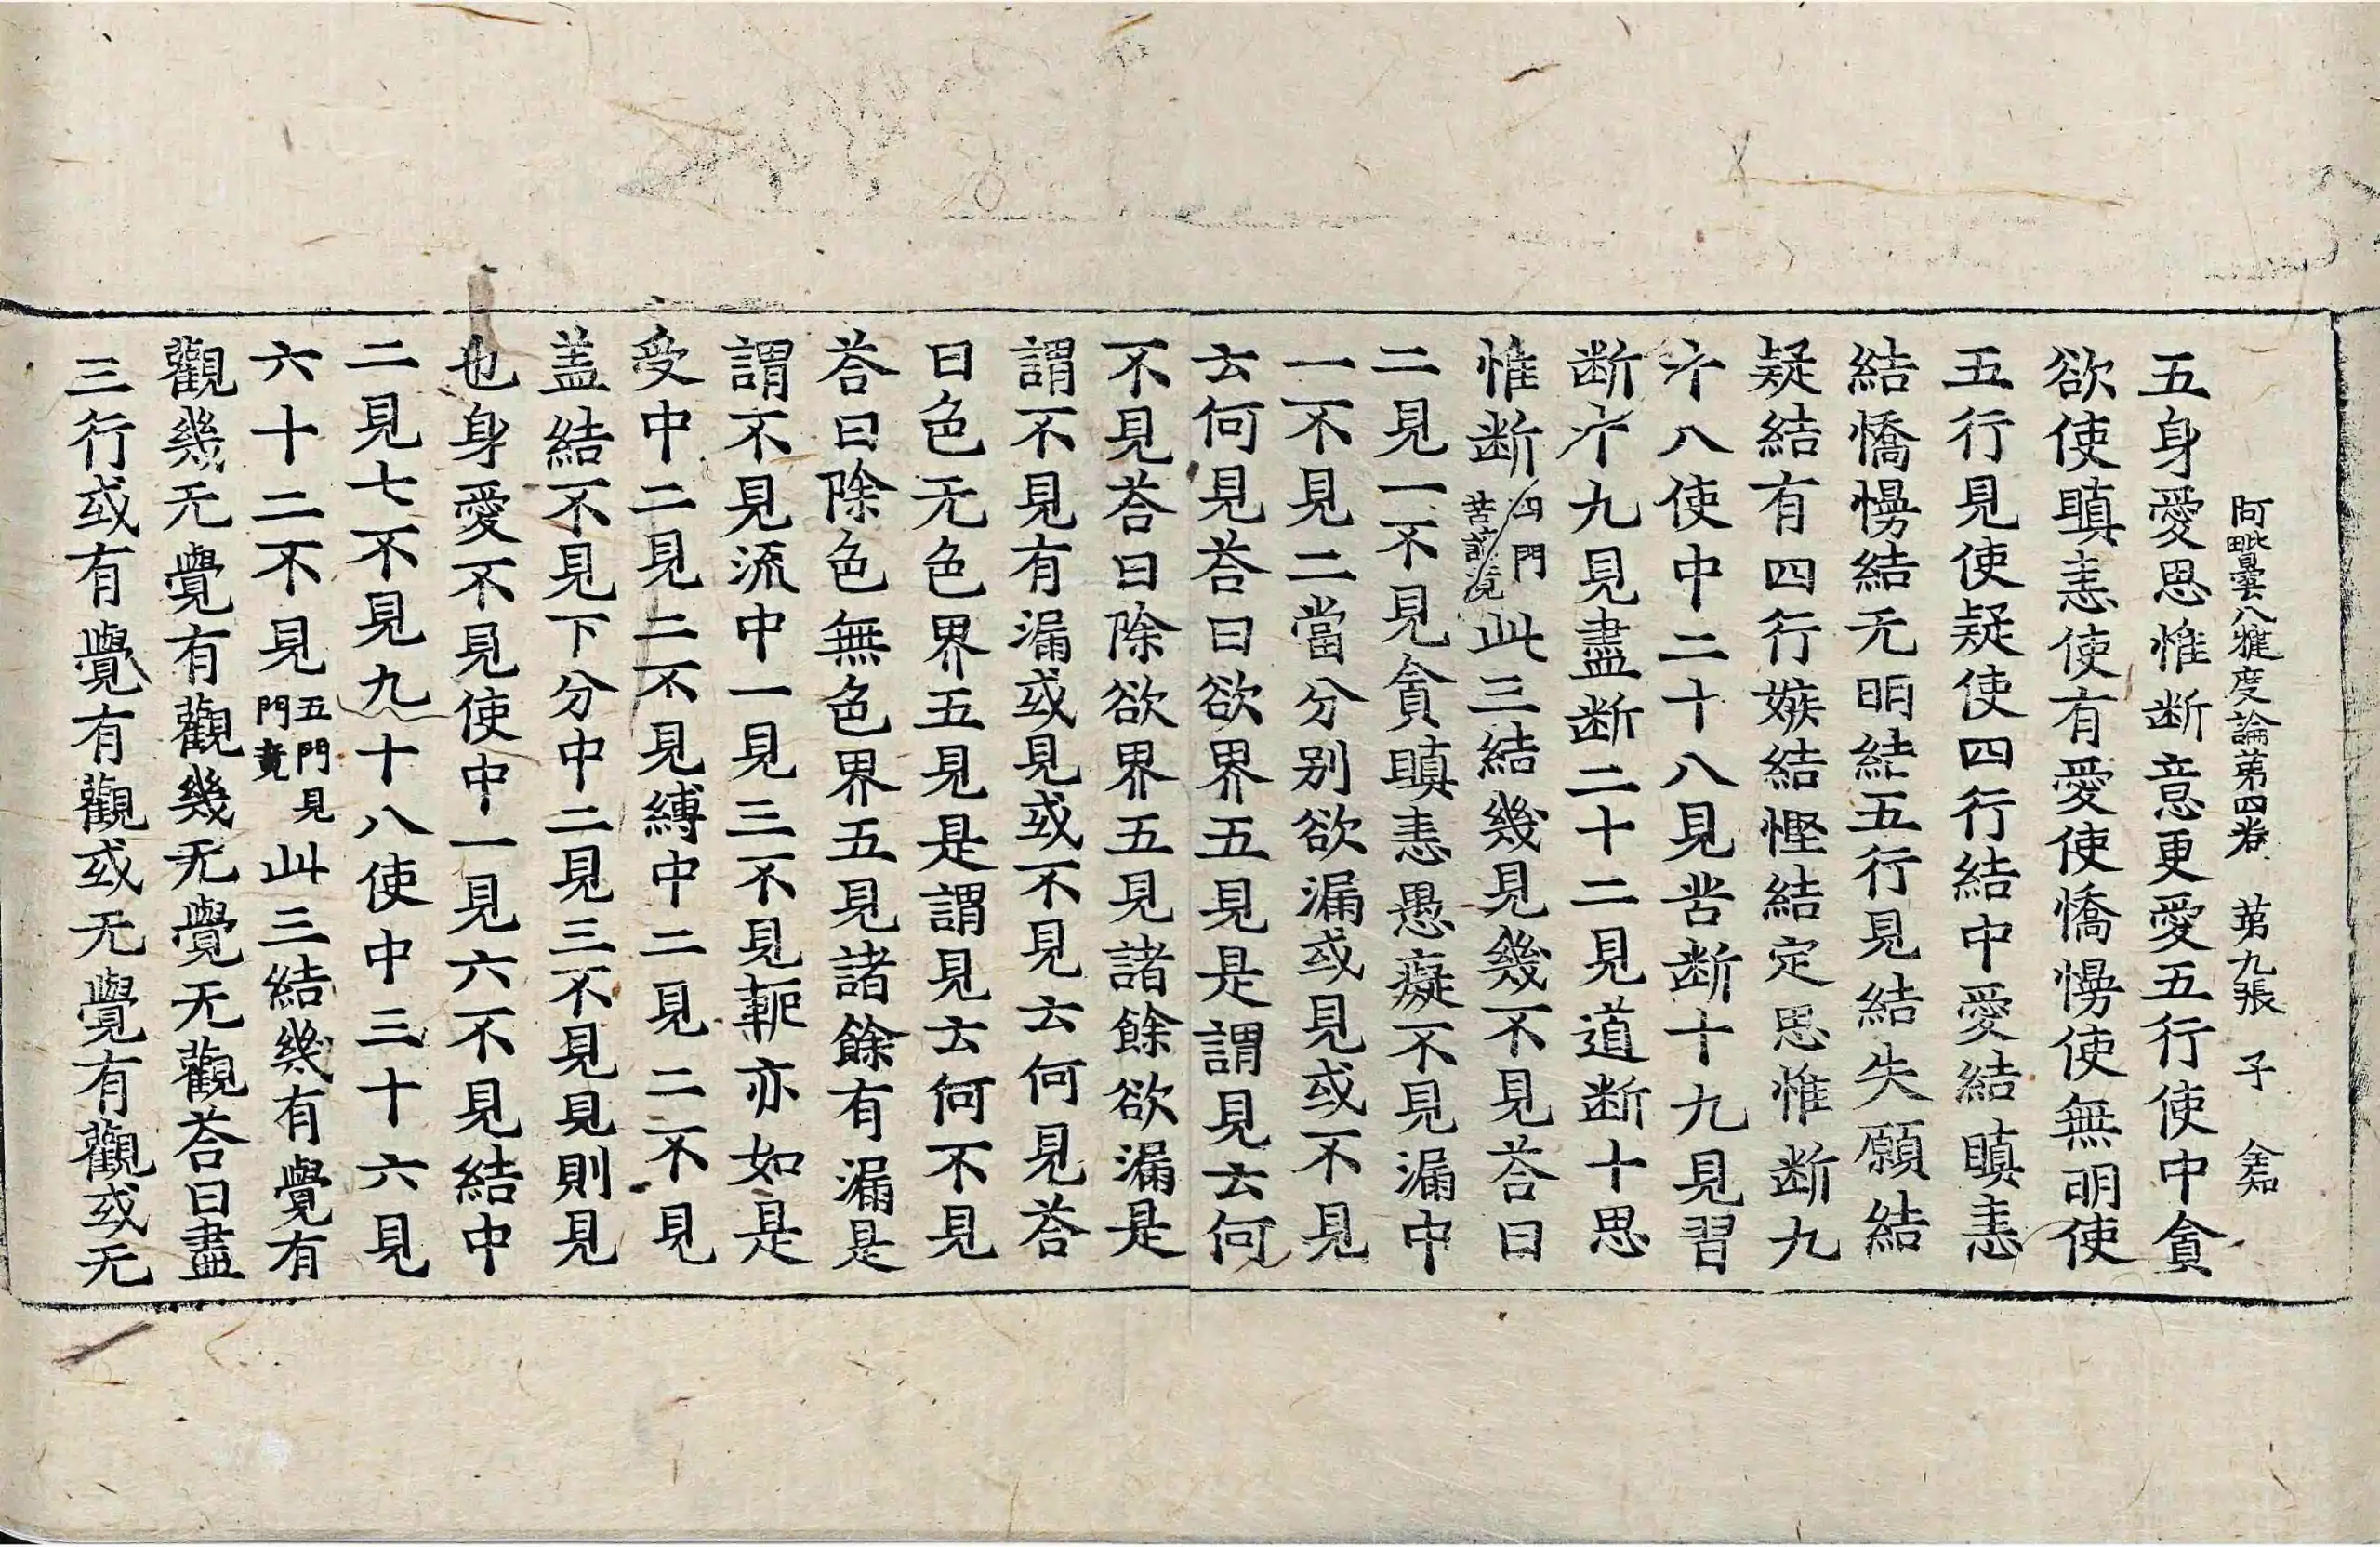 阿毗曇八犍度論第四卷 第九張 子 金知
五身愛思惟断意更愛五行使中貪
欲使瞋恚使有愛使憍慢使無明使
五行見使疑使四行結中愛結瞋恚
結憍慢結无明結五行見結失願結
疑結有四行嫉結慳結定思惟断九
十八使中二十八見苦断十九見習
断十九見盡断二十二見道断十思
惟断四門苦諦竟此三結幾見幾不見荅曰
二見一不見貪瞋恚愚癡不見漏中
一不見二當分別欲漏或見或不見
云何見荅曰欲界五見是謂見云何
不見荅曰除欲界五見諸餘欲漏是
謂不見有漏或見或不見云何見荅
曰色无色界五見是謂見云何不見
荅曰除色無色界五見諸餘有漏是
謂不見流中一見三不見軛亦如是
受中二見二不見縛中二見二不見
盖結不見下分中二見三不見見則見
也身愛不見使中一見六不見結中
二見七不見九十八使中三十六見
六十二不見五門見門竟此三結幾有覺有
觀幾无覺有觀幾无覺无觀荅曰盡
三行或有覺有觀或无覺有觀或无